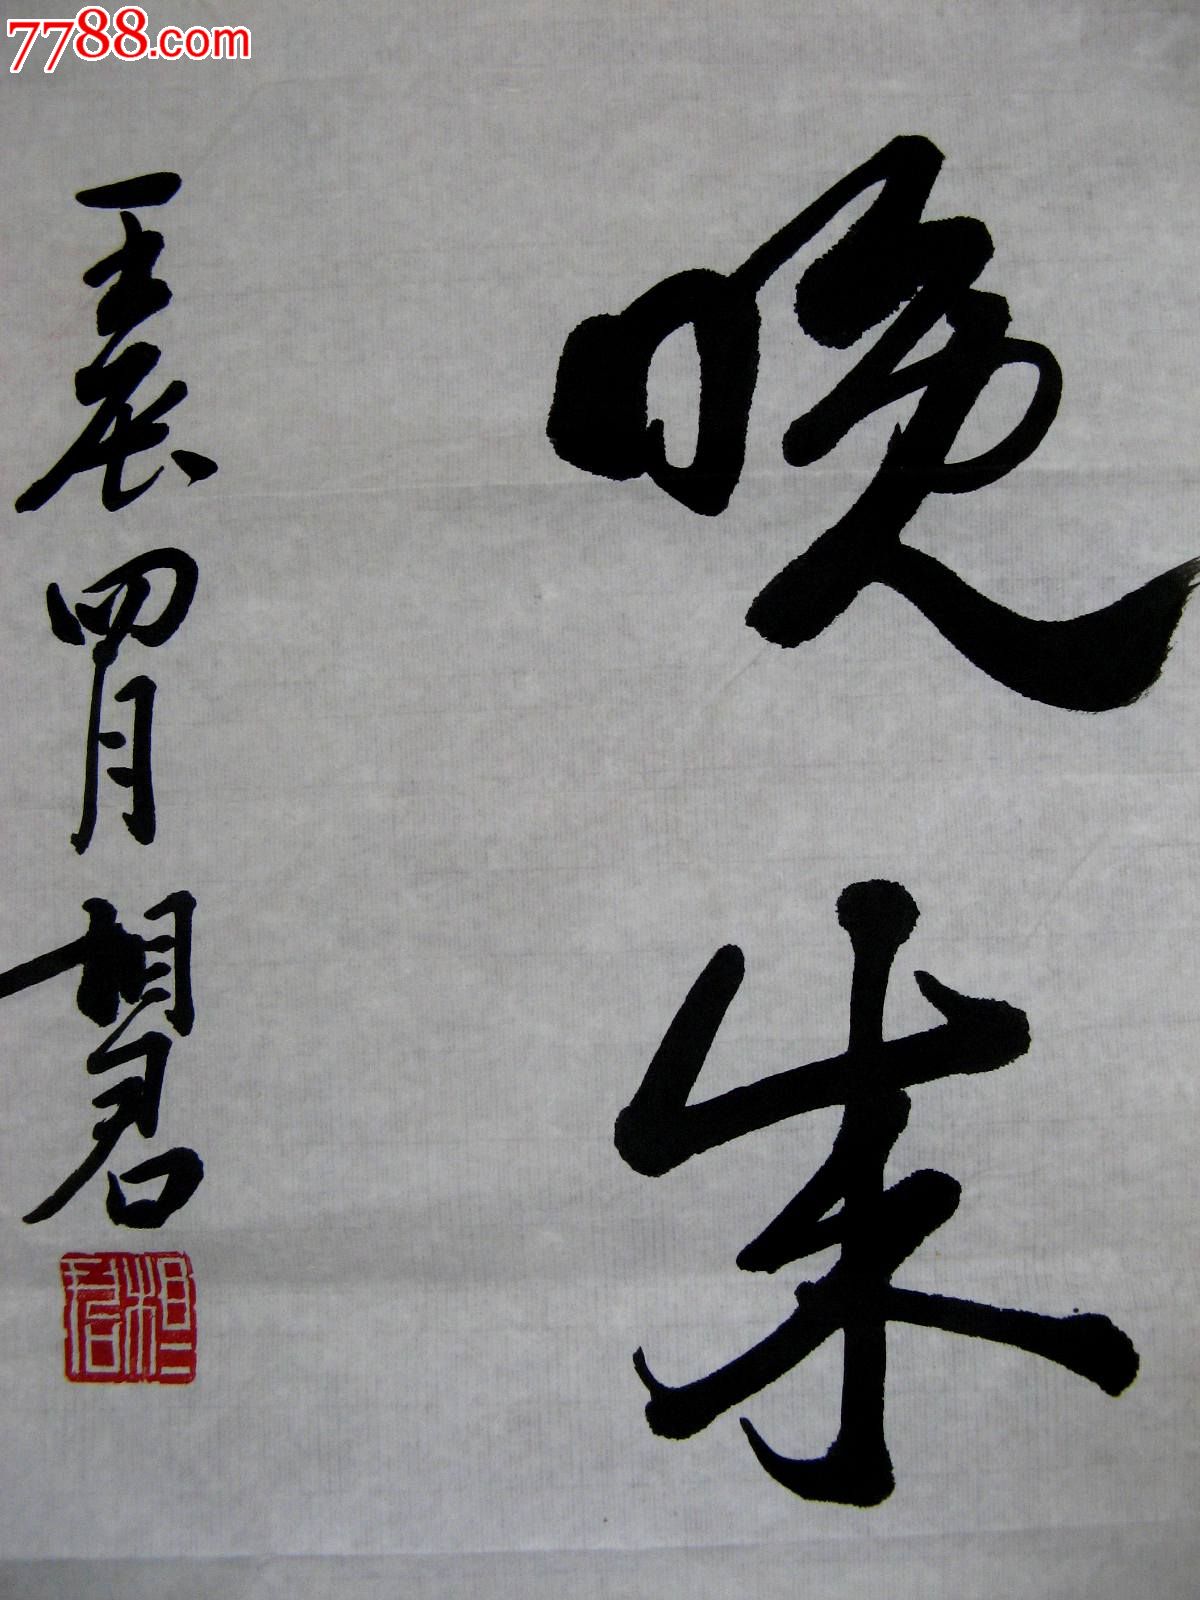 7788.com
晚朱
壬辰四月相君
相君